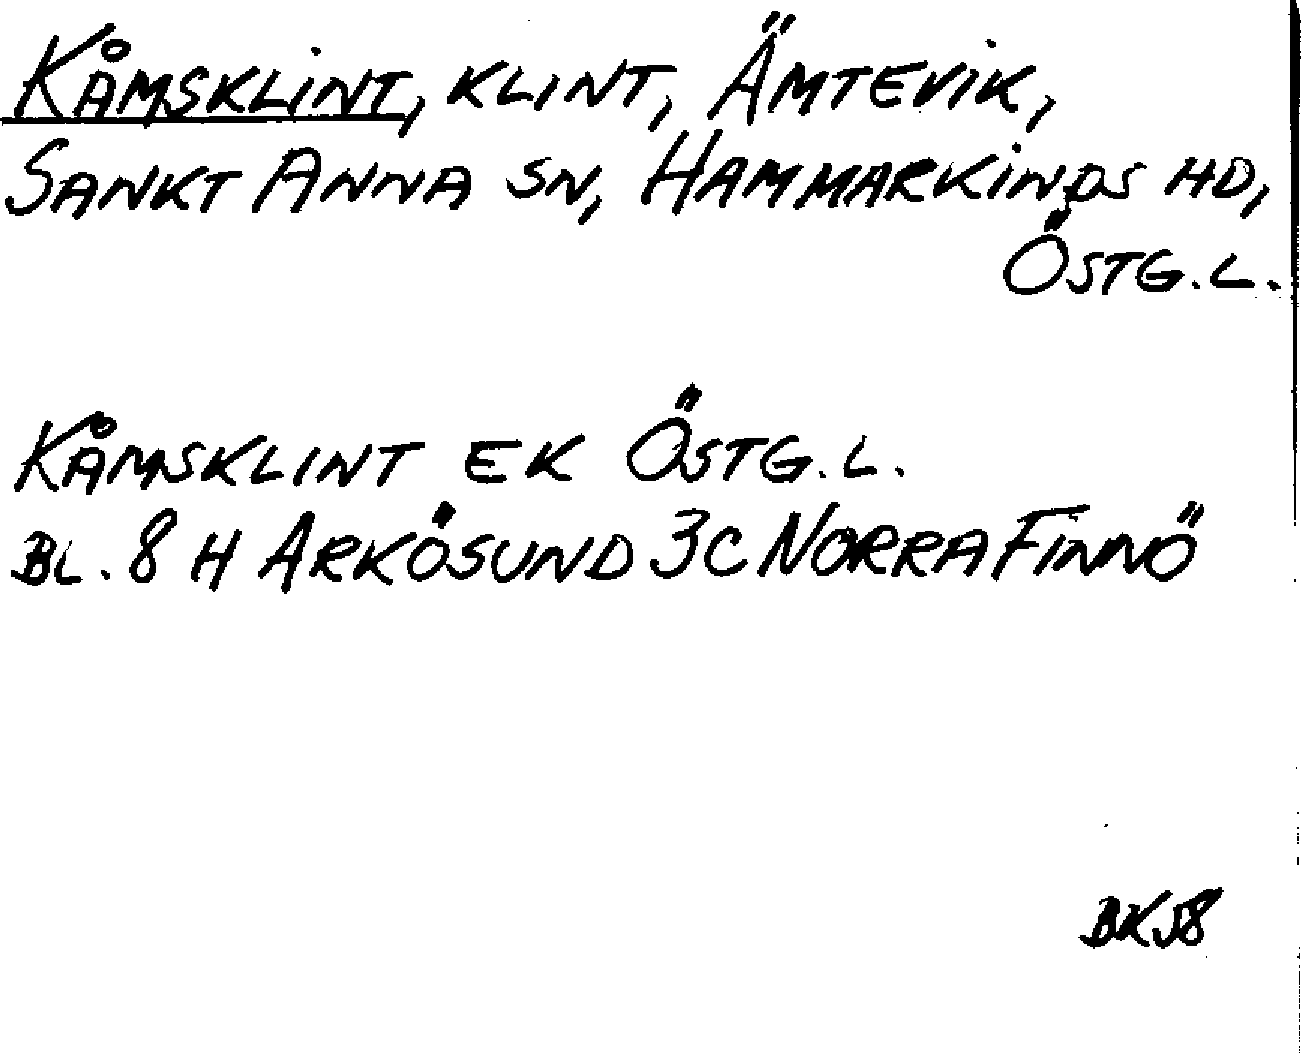 KÅMSKLINT, KLINT, ÄMTEVIK,
SANKT ANNA SN, HAMMARKINDS HD,
ÖSTG.L.
KÅMSKLINT EK ÖSTG.L.
BL. 8 H ARKÖSUND 3C NORRA FINNÖ
BK58